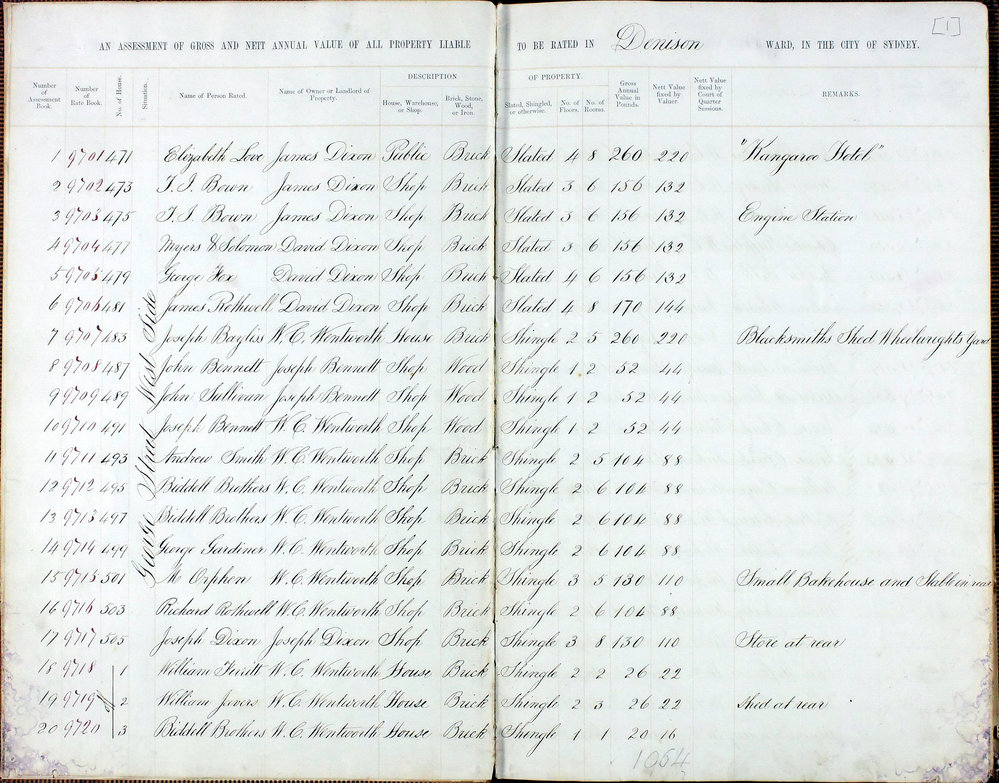 [1]
AN ASSESSMENT OF GROSS AND NETT ANNUAL VALUE OF ALL PROPERTY LIABLE TO BE RATED IN Denison WARD, IN THE CITY OF SYDNEY.
DESCRIPTION OF PROPERTY.
Number of Assessment Book. Number of Rate Book. No. of House. Situation. Name of Person Rated. Name of Owner or Landlord of Property. House, Warehouse, or Shop. Brick, Stone, Wood, or Iron. Slated, Shingled, or otherwise. No. of Floors. No. of Rooms. Gross Annual Value in Pounds. Nett Value fixed by Valuer. Nett Value fixed by Court of Quarter Sessions. REMARKS.
George Street West Side
1 9701 471 Elizabeth Love James Dixon Public Brick Slated 4 8 260 220 "Kangaroo Hotel"
2 9702 473 T. J. Bown James Dixon Shop Brick Slated 3 6 156 132
3 9703 475 T. J. Bown James Dixon Shop Brick Slated 3 6 156 132 Engine Station
4 9704 477 Myers & Solomon David Dixon Shop Brick Slated 3 6 156 132
5 9705 479 George Fox David Dixon Shop Brick Slated 4 6 156 132
6 9706 481 James Rothwell David Dixon Shop Brick Slated 4 8 170 144
7 9707 483 Joseph Bayliss W. C. Wentworth House Brick Shingle 2 5 260 220 Blacksmiths Shed Wheelwrights Yard
8 9708 487 John Bennett Joseph Bennett Shop Wood Shingle 1 2 52 44
9 9709 489 John Sullivan Joseph Bennett Shop Wood Shingle 1 2 52 44
10 9710 491 Joseph Bennett W. C. Wentworth Shop Wood Shingle 1 2 52 44
11 9711 493 Andrew Smith W. C. Wentworth Shop Brick Shingle 2 5 104 88
12 9712 495 Biddell Brothers W. C. Wentworth Shop Brick Shingle 2 6 104 88
13 9713 497 Biddell Brothers W. C. Wentworth Shop Brick Shingle 2 6 104 88
14 9714 499 George Gardiner W. C. Wentworth Shop Brick Shingle 2 6 104 88
15 9715 501 Mc Orphen W. C. Wentworth Shop Brick Shingle 3 5 130 110 Small Bakehouse and Stable in rear
16 9716 503 Richard Rothwell W. C. Wentworth Shop Brick Shingle 2 6 104 88
17 9717 505 Joseph Dixon Joseph Dixon Shop Brick Shingle 3 8 130 110 Store at rear
18 9718 1 William W. C. Wentworth House Brick Shingle 2 2 26 22
19 9719 2 William Javers W. C. Wentworth House Brick Shingle 2 3 26 22 Shed at rear
20 9720 3 Biddell Brothers W. C. Wentworth House Brick Shingle 1 1 20 16
1054